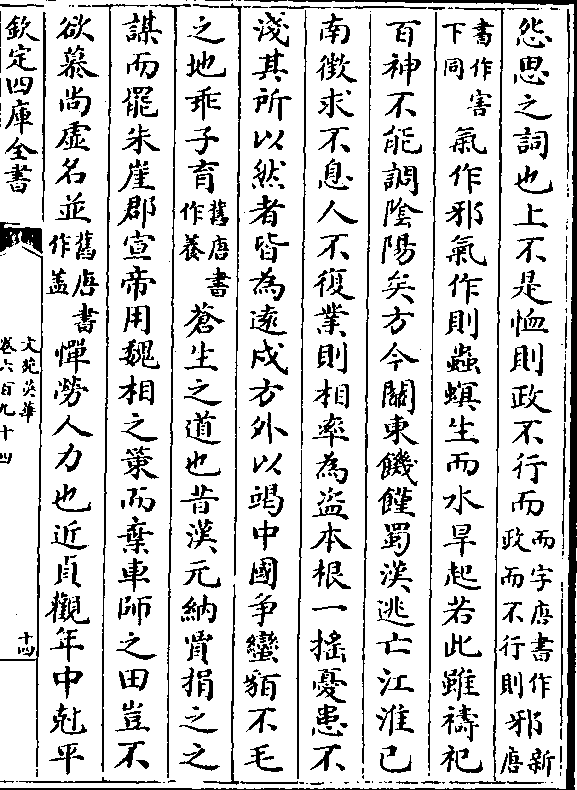 怨思之詞也上不是恤則政不行而而字唐書作政而不行則邪新唐
書作害下同氣作邪氣作則蟲螟生而水旱起若此雖禱祀
百神不能調陰陽矣方今關東饑饉蜀漢逃亡江淮已
南徴求不息人不復業則相率為盜本根一搖憂患不
淺其所以然者皆為遠戍方外以竭中國爭蠻貊不毛
之地乖子育舊唐書作養蒼生之道也昔漢元納賈捐之之
謀而罷朱崖郡宣帝用魏相之策而棄車師之田豈不
欲慕尚虚名並舊唐書作蓋憚勞人力也近貞觀年中尅平
欽定四庫全書
文苑英華
卷六百九十四
十四